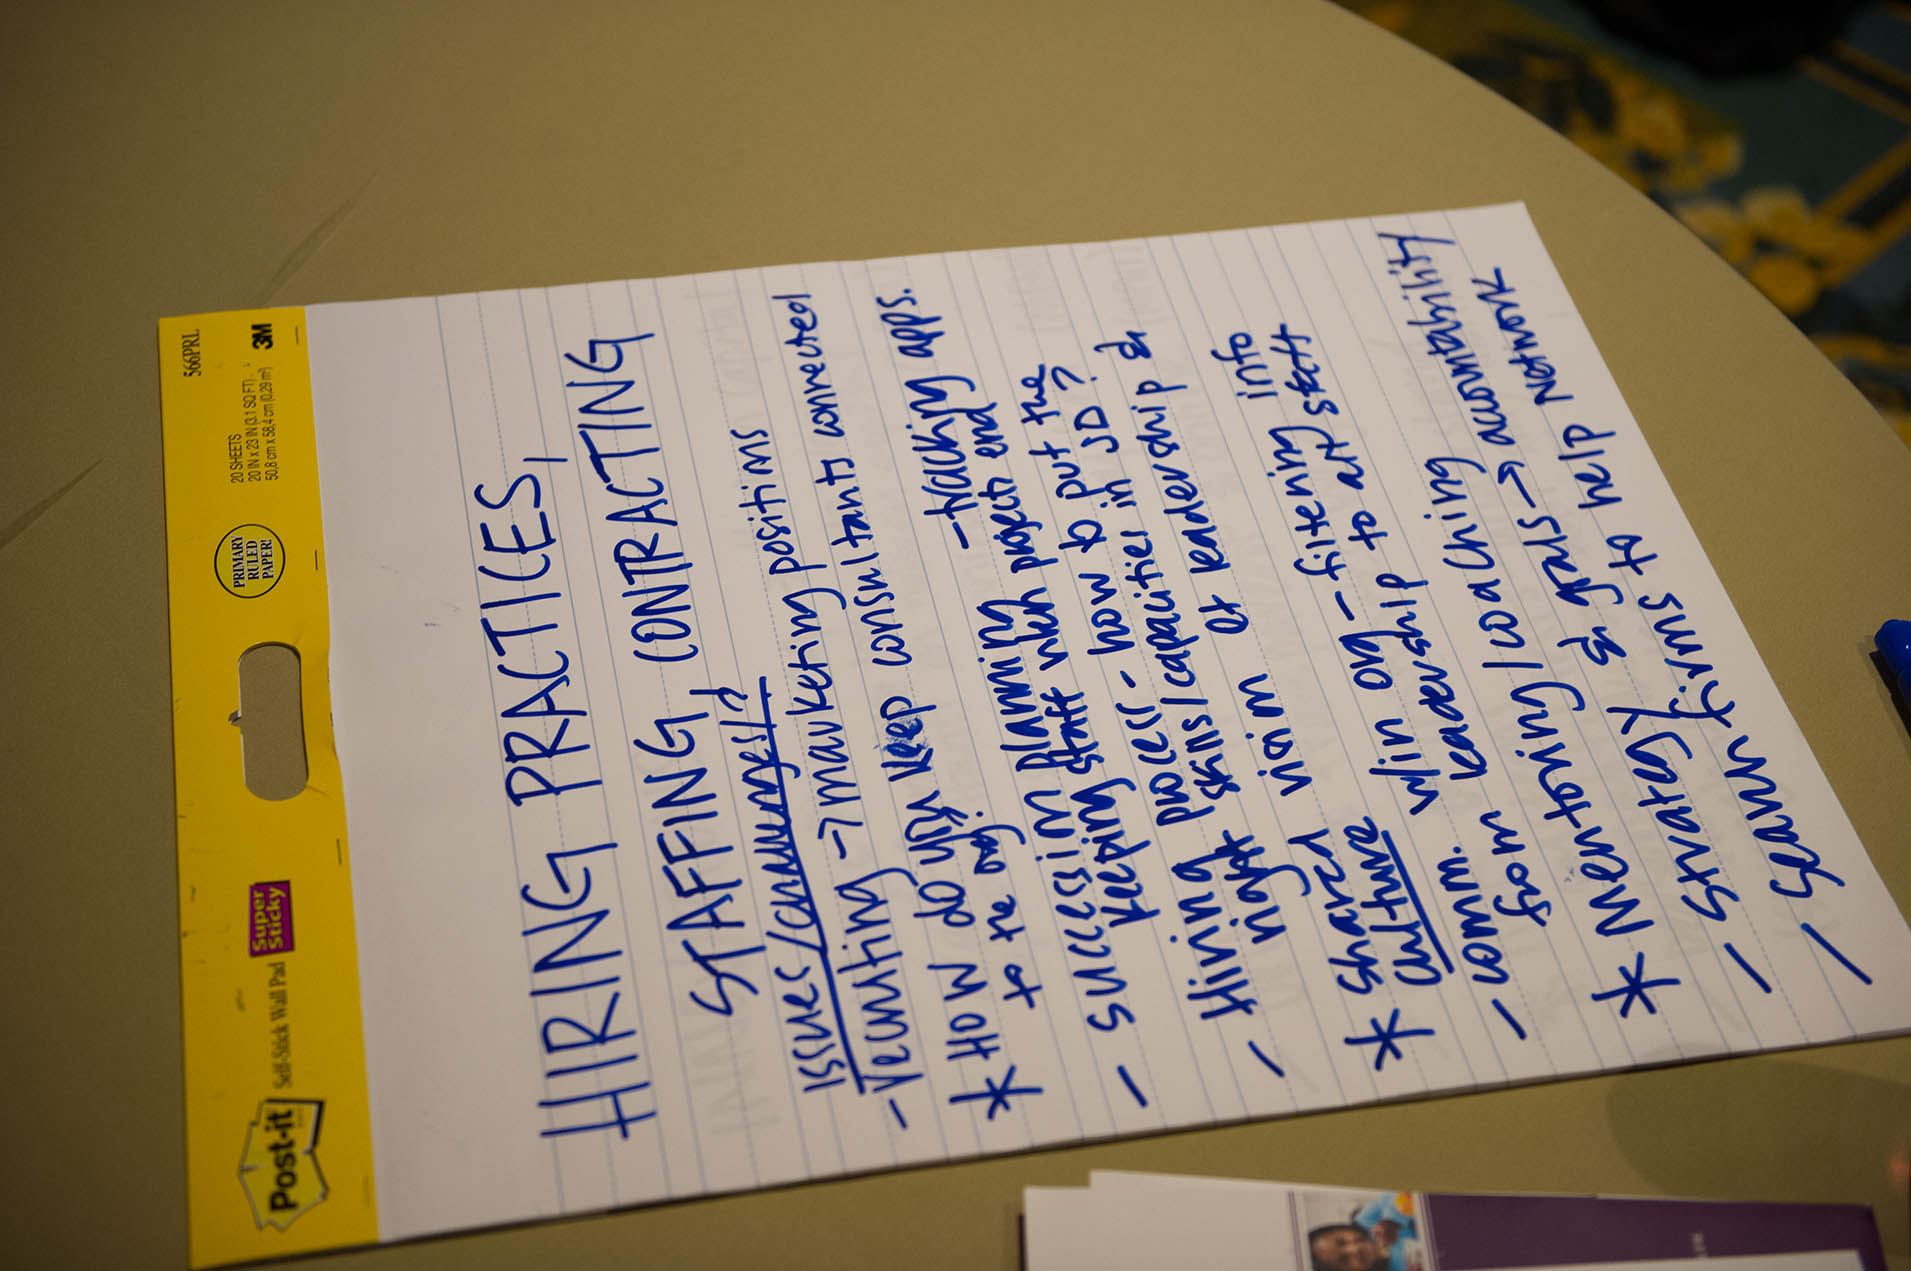 Post-it Self-Stick Wall Pad Super Sticky
PRIMARY
RULED
PAPER!
20 SHEETS
20 IN x 23 IN (3.1 SQ FT)
50,8 cm x 58,4 cm (0,29 m²)
3M
566PRL
HIRING PRACTICES,
STAFFING, CONTRACTING
issues/challenges/?
- recruiting → marketing positions
* How do you keep consultants connected
to te org. - tracking apps.
- succession planning - project end
keeping staff when
Hiring process - how to put the
right skills/capacities in JD?
* shared vision of leadership &
culture w/in org - filtering info
- comm. leadership to ent staff
from
* Mentoring/coaching
- strategy & goals → accountability
- search firms to help Network